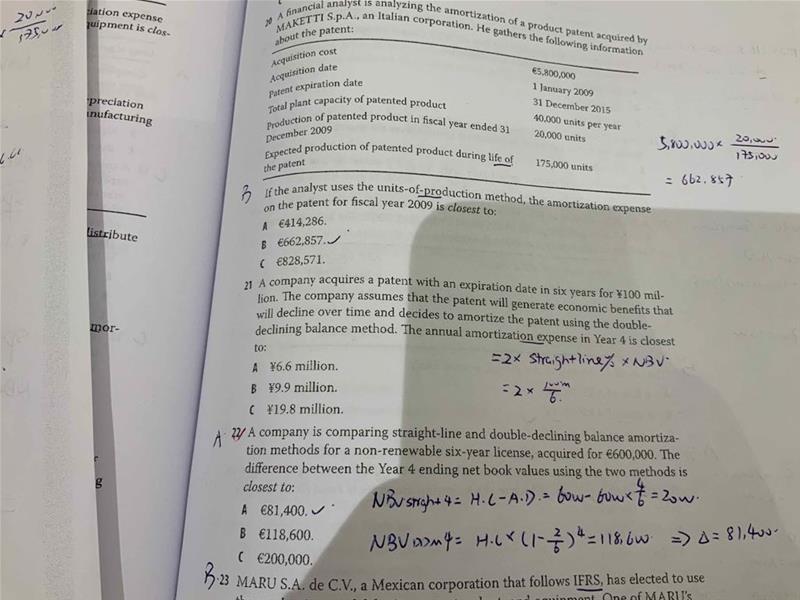 20 A financial analyst is analyzing the amortization of a product patent acquired by
MAKETTI S.p.A., an Italian corporation. He gathers the following information
about the patent:
Acquisition cost €5,800,000
Acquisition date 1 January 2009
Patent expiration date 31 December 2015
Total plant capacity of patented product 40,000 units per year
Production of patented product in fiscal year ended 31 20,000 units
December 2009
Expected production of patented product during life of 175,000 units
the patent
5,800,000 × 20,000 / 175,000
= 662,857
B If the analyst uses the units-of-production method, the amortization expense
on the patent for fiscal year 2009 is closest to:
A €414,286.
B €662,857. ✓
C €828,571.
21 A company acquires a patent with an expiration date in six years for ¥100 mil-
lion. The company assumes that the patent will generate economic benefits that
will decline over time and decides to amortize the patent using the double-
declining balance method. The annual amortization expense in Year 4 is closest
to:
= 2 × straight line % × NBV
A ¥6.6 million.
= 2 × 100m / 6
B ¥9.9 million.
C ¥19.8 million.
A 22 A company is comparing straight-line and double-declining balance amortiza-
tion methods for a non-renewable six-year license, acquired for €600,000. The
difference between the Year 4 ending net book values using the two methods is
closest to:
NBV straight 4 = H.C - A.D. = 60w - 60w × 4/6 = 20w.
A €81,400. ✓
B €118,600.
NBV DDM 4 = H.C × (1 - 2/6)^4 = 118,600 ⇒ Δ = 81,400
C €200,000.
B 23 MARU S.A. de C.V., a Mexican corporation that follows IFRS, has elected to use
One of MARU's
iation expense
quipment is clos-
preciation
nufacturing
distribute
mor-
g
20
175,